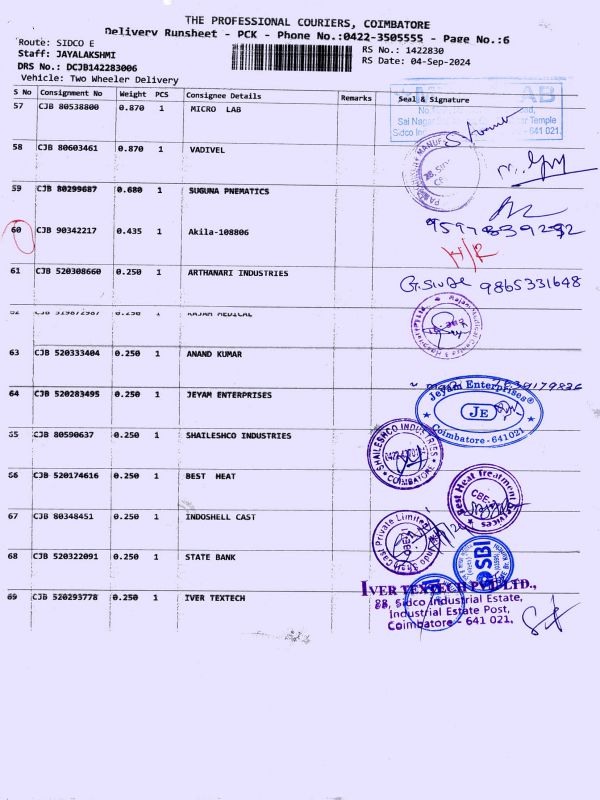 THE PROFESSIONAL COURIERS, COIMBATORE
Delivery Runsheet - PCK - Phone No.:0422-3505555 - Page No.:6
Route: SIDCO E
RS No.: 1422830
Staff: JAYALAKSHMI
RS Date: 04-Sep-2024
DRS No.: DCJB142283006
Vehicle: Two Wheeler Delivery
S No Consignment No Weight PCS Consignee Details Remarks Seal & Signature
57 CJB 80538800 0.870 1 MICRO LAB
LAB
Sai Nagar Temple
Sidco - 641 021.
58 CJB 80603461 0.870 1 VADIVEL
59 CJB 80299687 0.680 1 SUGUNA PNEMATICS
60 CJB 90342217 0.435 1 Akila-108806
H/R
61 CJB 520308660 0.250 1 ARTHANARI INDUSTRIES
9865331648
62 CJB 519872987 0.250 1 RAJAM MEDICAL
63 CJB 520333404 0.250 1 ANAND KUMAR
64 CJB 520283495 0.250 1 JEYAM ENTERPRISES
Jeyam Enterprises®
JE
Coimbatore - 641021
65 CJB 80590637 0.250 1 SHAILESHCO INDUSTRIES
SHAILESHCO INDUSTRIES
COIMBATORE
66 CJB 520174616 0.250 1 BEST HEAT
Best Heat Treatment Services
CBE
67 CJB 80348451 0.250 1 INDOSHELL CAST
Indo Shell Cast Private Limited
68 CJB 520322091 0.250 1 STATE BANK
SBI
69 CJB 520293778 0.250 1 IVER TEXTECH
IVER TEXTECH PVT LTD.,
88, Sidco Industrial Estate,
Industrial Estate Post,
Coimbatore - 641 021.